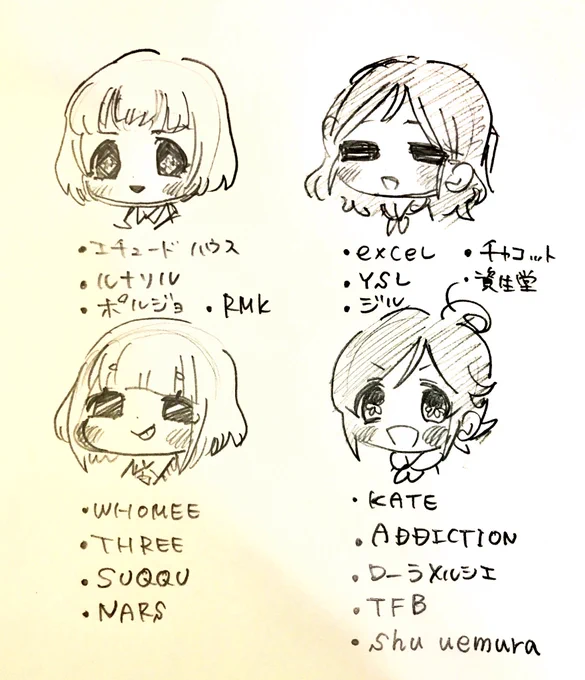 ・エチュードハウス
・ルナソル
・ポルジョ ・RMK
・excel ・チャコット
・YSL ・資生堂
・ジル
・WHOMEE
・THREE
・SUQQU
・NARS
・KATE
・ADDICTION
・ローラメルシエ
・TFB
・shu uemura